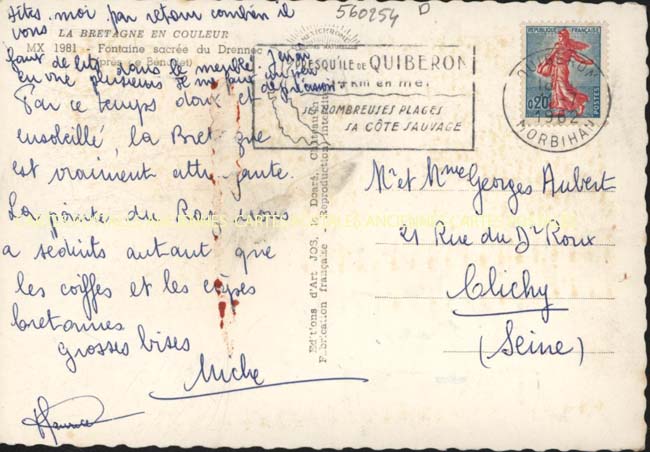 Dites-moi par retour combien il
vous
LA BRETAGNE EN COULEUR
MX 1981 - Fontaine sacrée du Drennec
(près Le Bénodet)
faut de lits dans le meublé. J'en ai
en vue plusieurs
Par ce temps doux et
ensoleillé, la Bretagne
est vraiment attrayante.
La pointe du Raz nous
a séduits autant que
les coiffes et les crêpes
bretonnes
Grosses bises
Miche
Maurice
560254 D
PRESQU'ILE DE QUIBERON
KM EN MER
SES NOMBREUSES PLAGES
SA CÔTE SAUVAGE
REPUBLIQUE FRANÇAISE
0,20
POSTES
QUIBERON
1962
MORBIHAN
Mr et Mme Georges Aubert
21 Rue du Dr Roux
Clichy
(Seine)
Editions d'Art JOS, le Doaré, Châteaulin
Fabrication française - Reproduction interdite